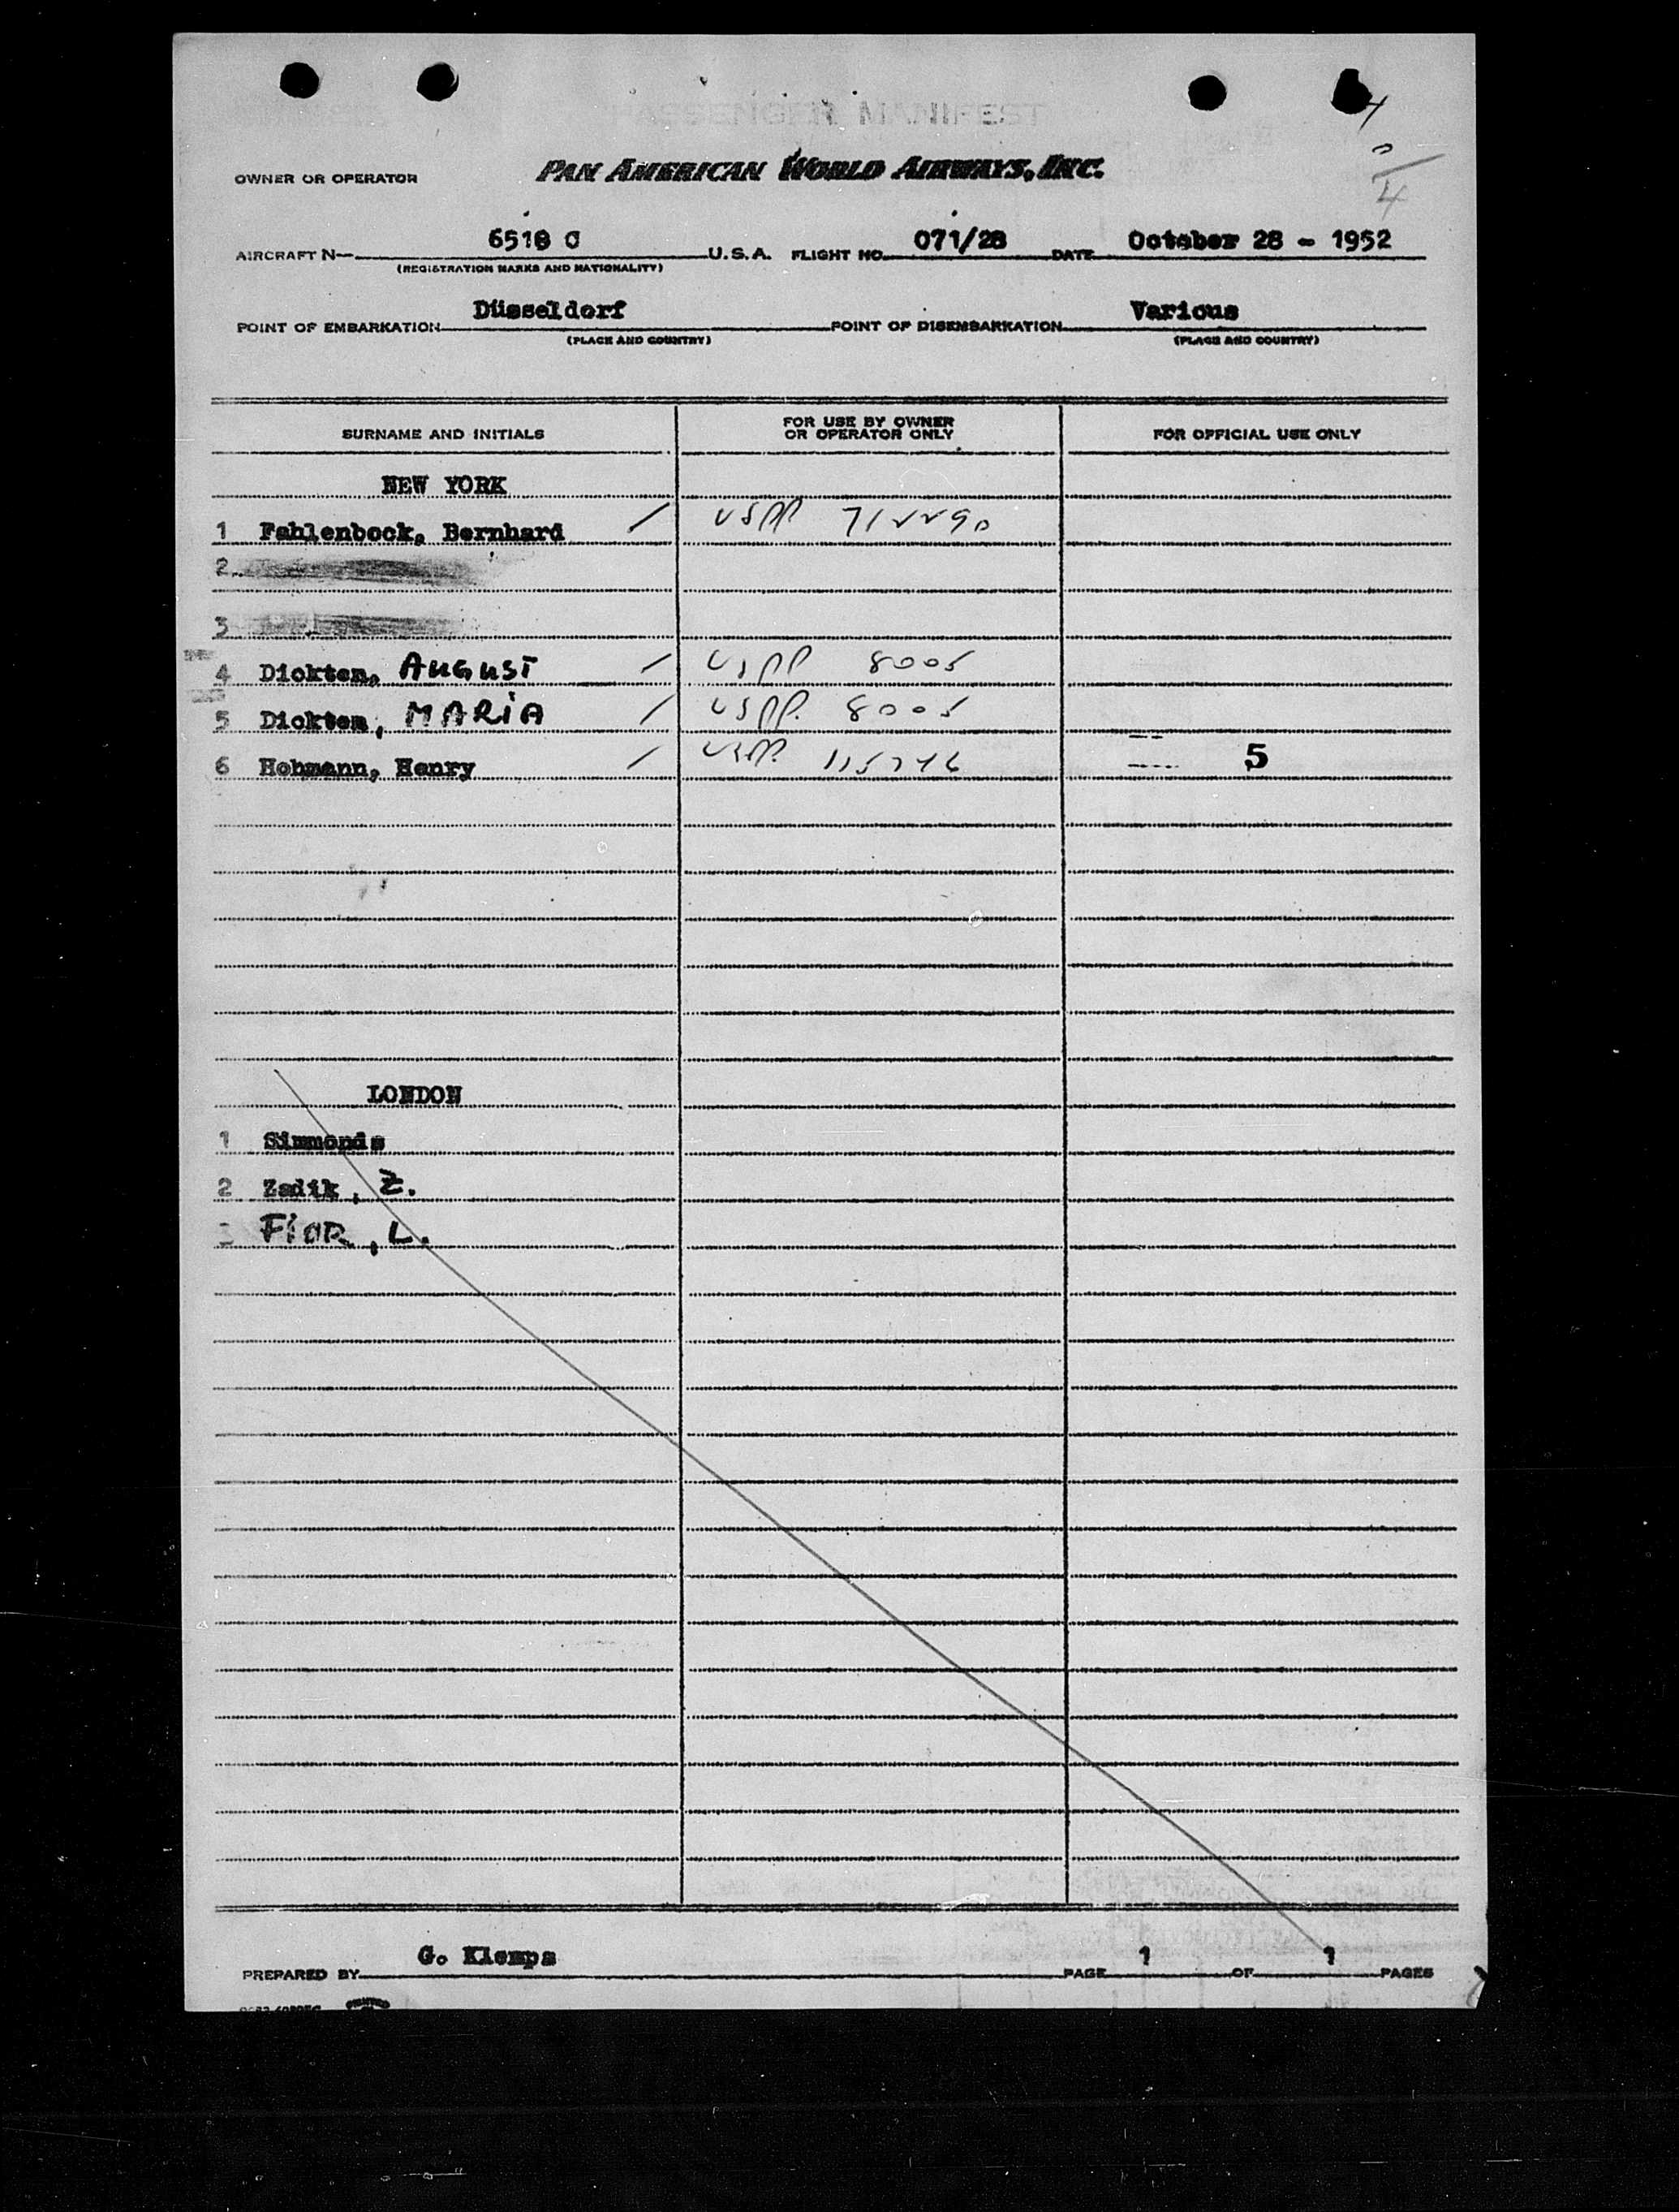 PASSENGER MANIFEST
4
0/4
OWNER OR OPERATOR PAN AMERICAN WORLD AIRWAYS, INC.
AIRCRAFT N— 6518 C U.S.A. FLIGHT NO. 071/28 DATE October 28 - 1952
(REGISTRATION MARKS AND NATIONALITY)
POINT OF EMBARKATION Düsseldorf POINT OF DISEMBARKATION Various
(PLACE AND COUNTRY) (PLACE AND COUNTRY)
SURNAME AND INITIALS FOR USE BY OWNER OR OPERATOR ONLY FOR OFFICIAL USE ONLY
NEW YORK
1 Fahlenbock, Bernhard / USPP
2
3
4 Dickten, AUGUST / USPP 8005
5 Dickten, MARIA / USPP. 8005
6 Hohmann, Henry / USPP. 5
LONDON
1 Simmonds
2 Zadik, Z.
3 FIOR, L.
PREPARED BY G. Klemps PAGE 1 OF 1 PAGES